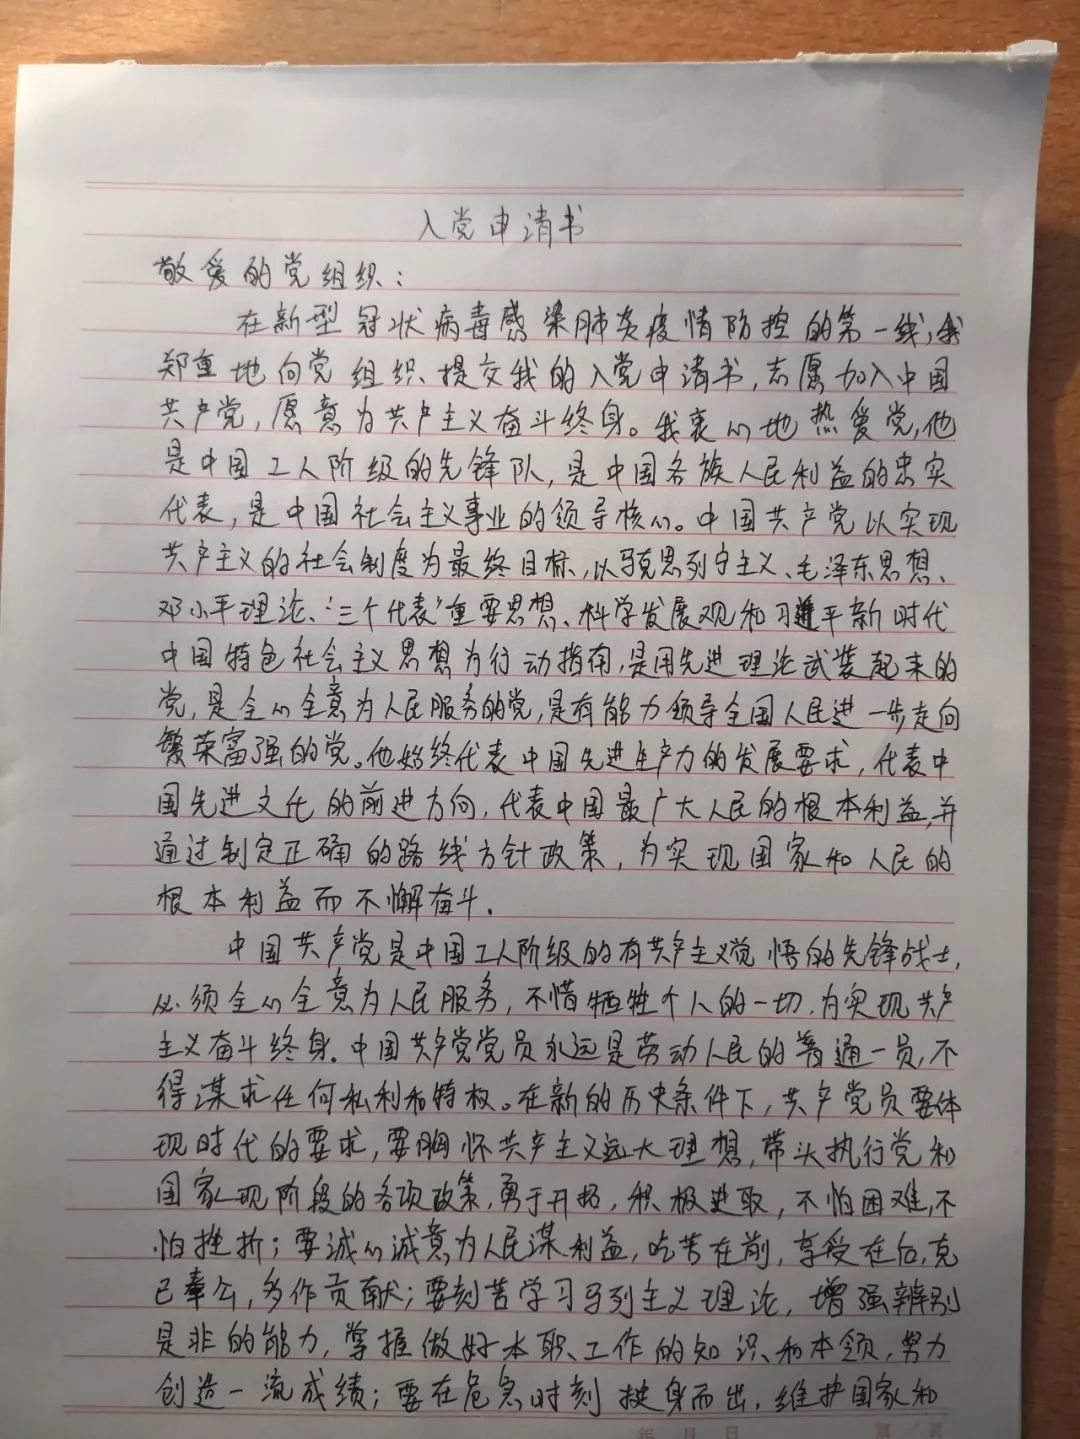 入党申请书
敬爱的党组织：
在新型冠状病毒感染肺炎疫情防控的第一线，我
郑重地向党组织提交我的入党申请书，志愿加入中国
共产党，愿意为共产主义奋斗终身。我衷心地热爱党，他
是中国工人阶级的先锋队，是中国各族人民利益的忠实
代表，是中国社会主义事业的领导核心。中国共产党以实现
共产主义的社会制度为最终目标，以马克思列宁主义、毛泽东思想、
邓小平理论、“三个代表”重要思想、科学发展观和习近平新时代
中国特色社会主义思想为行动指南，是用先进理论武装起来的
党，是全心全意为人民服务的党，是有能力领导全国人民进一步走向
繁荣富强的党。他始终代表中国先进生产力的发展要求，代表中
国先进文化的前进方向，代表中国最广大人民的根本利益，并
通过制定正确的路线方针政策，为实现国家和人民的
根本利益而不懈奋斗.
中国共产党是中国工人阶级的有共产主义觉悟的先锋战士，
必须全心全意为人民服务，不惜牺牲个人的一切，为实现共产
主义奋斗终身.中国共产党党员永远是劳动人民的普通一员，不
得谋求任何私利和特权。在新的历史条件下，共产党员要体
现时代的要求，要胸怀共产主义远大理想，带头执行党和
国家现阶段的各项政策，勇于开拓，积极进取，不怕困难，不
怕挫折；要诚心诚意为人民谋利益，吃苦在前，享受在后，克
己奉公，多作贡献；要刻苦学习马列主义理论，增强辨别
是非的能力，掌握做好本职工作的知识和本领，努力
创造一流成绩；要在危急时刻挺身而出，维护国家和
年 月 日 第 页